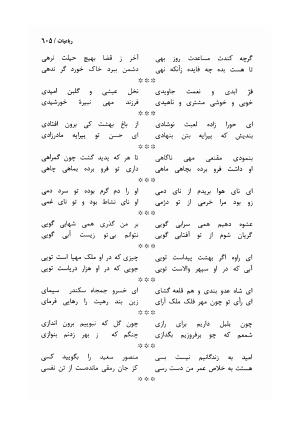 رباعیات / ۶۰۵
گرچه کندت مساعدت روز بهی آخر ز قضا بهیچ حیلت نرهی
تا هست بده چه فایده زآنکه نهی دشمن ببرد خاک خورد گر ندهی
***
فر ابدی و نعمت جاویدی نخل عیشی و گلبن امیدی
خوبی و خوشی مشتری و ناهیدی فرزند مهی نبیرهٔ خورشیدی
***
ای حورا زاده لعبت نوشادی از باغ بهشت کی برون افتادی
بندیش که پیرایه بتن بنهادی ای حسن تو پیرایه مادرزادی
***
بنمودی مقنعی مهی ناگاهی تا هر که پدید گشت چون گمراهی
او داشت فرو برده بچاهی ماهی داری تو فرو برده بماهی چاهی
***
ای نای هوا بریدم از نای دمی او را دم گرم بوده تو سرد دمی
زو بود مرا خرمی از تو دژمی او نای نشاط بود و تو نای غمی
***
عشوه دهیم همی سرابی گویی بر من گذری همی شهابی گویی
گریان شوم از تو آفتابی گویی نتوانم بی‌تو زیست آبی گویی
***
ای راوه اگر بهشت پیداست تویی چیزی که در او ملک مهیا است تویی
آبی که در او سپهر والاست تویی جویی که در او هزار دریاست تویی
***
ای شاه عدو بندی و هم قلعه گشای ای خسرو جمجاه سکندر سیمای
ای رأی تو چون مهر فلک ملک آرای زین بند رهیت را رهایی فرمای
***
چون بلبل داریم برای رازی چون گل که نبوییم برون اندازی
شمعم که چو برفروزیم بگدازی چنگم که ز بهر زدنم بنوازی
***
امید به زندگانیم نیست بسی منصور سعید را بگویید کسی
هستت به خلاص عمر من دست رسی کز جان رمقی مانده‌ست از تن نفسی
***